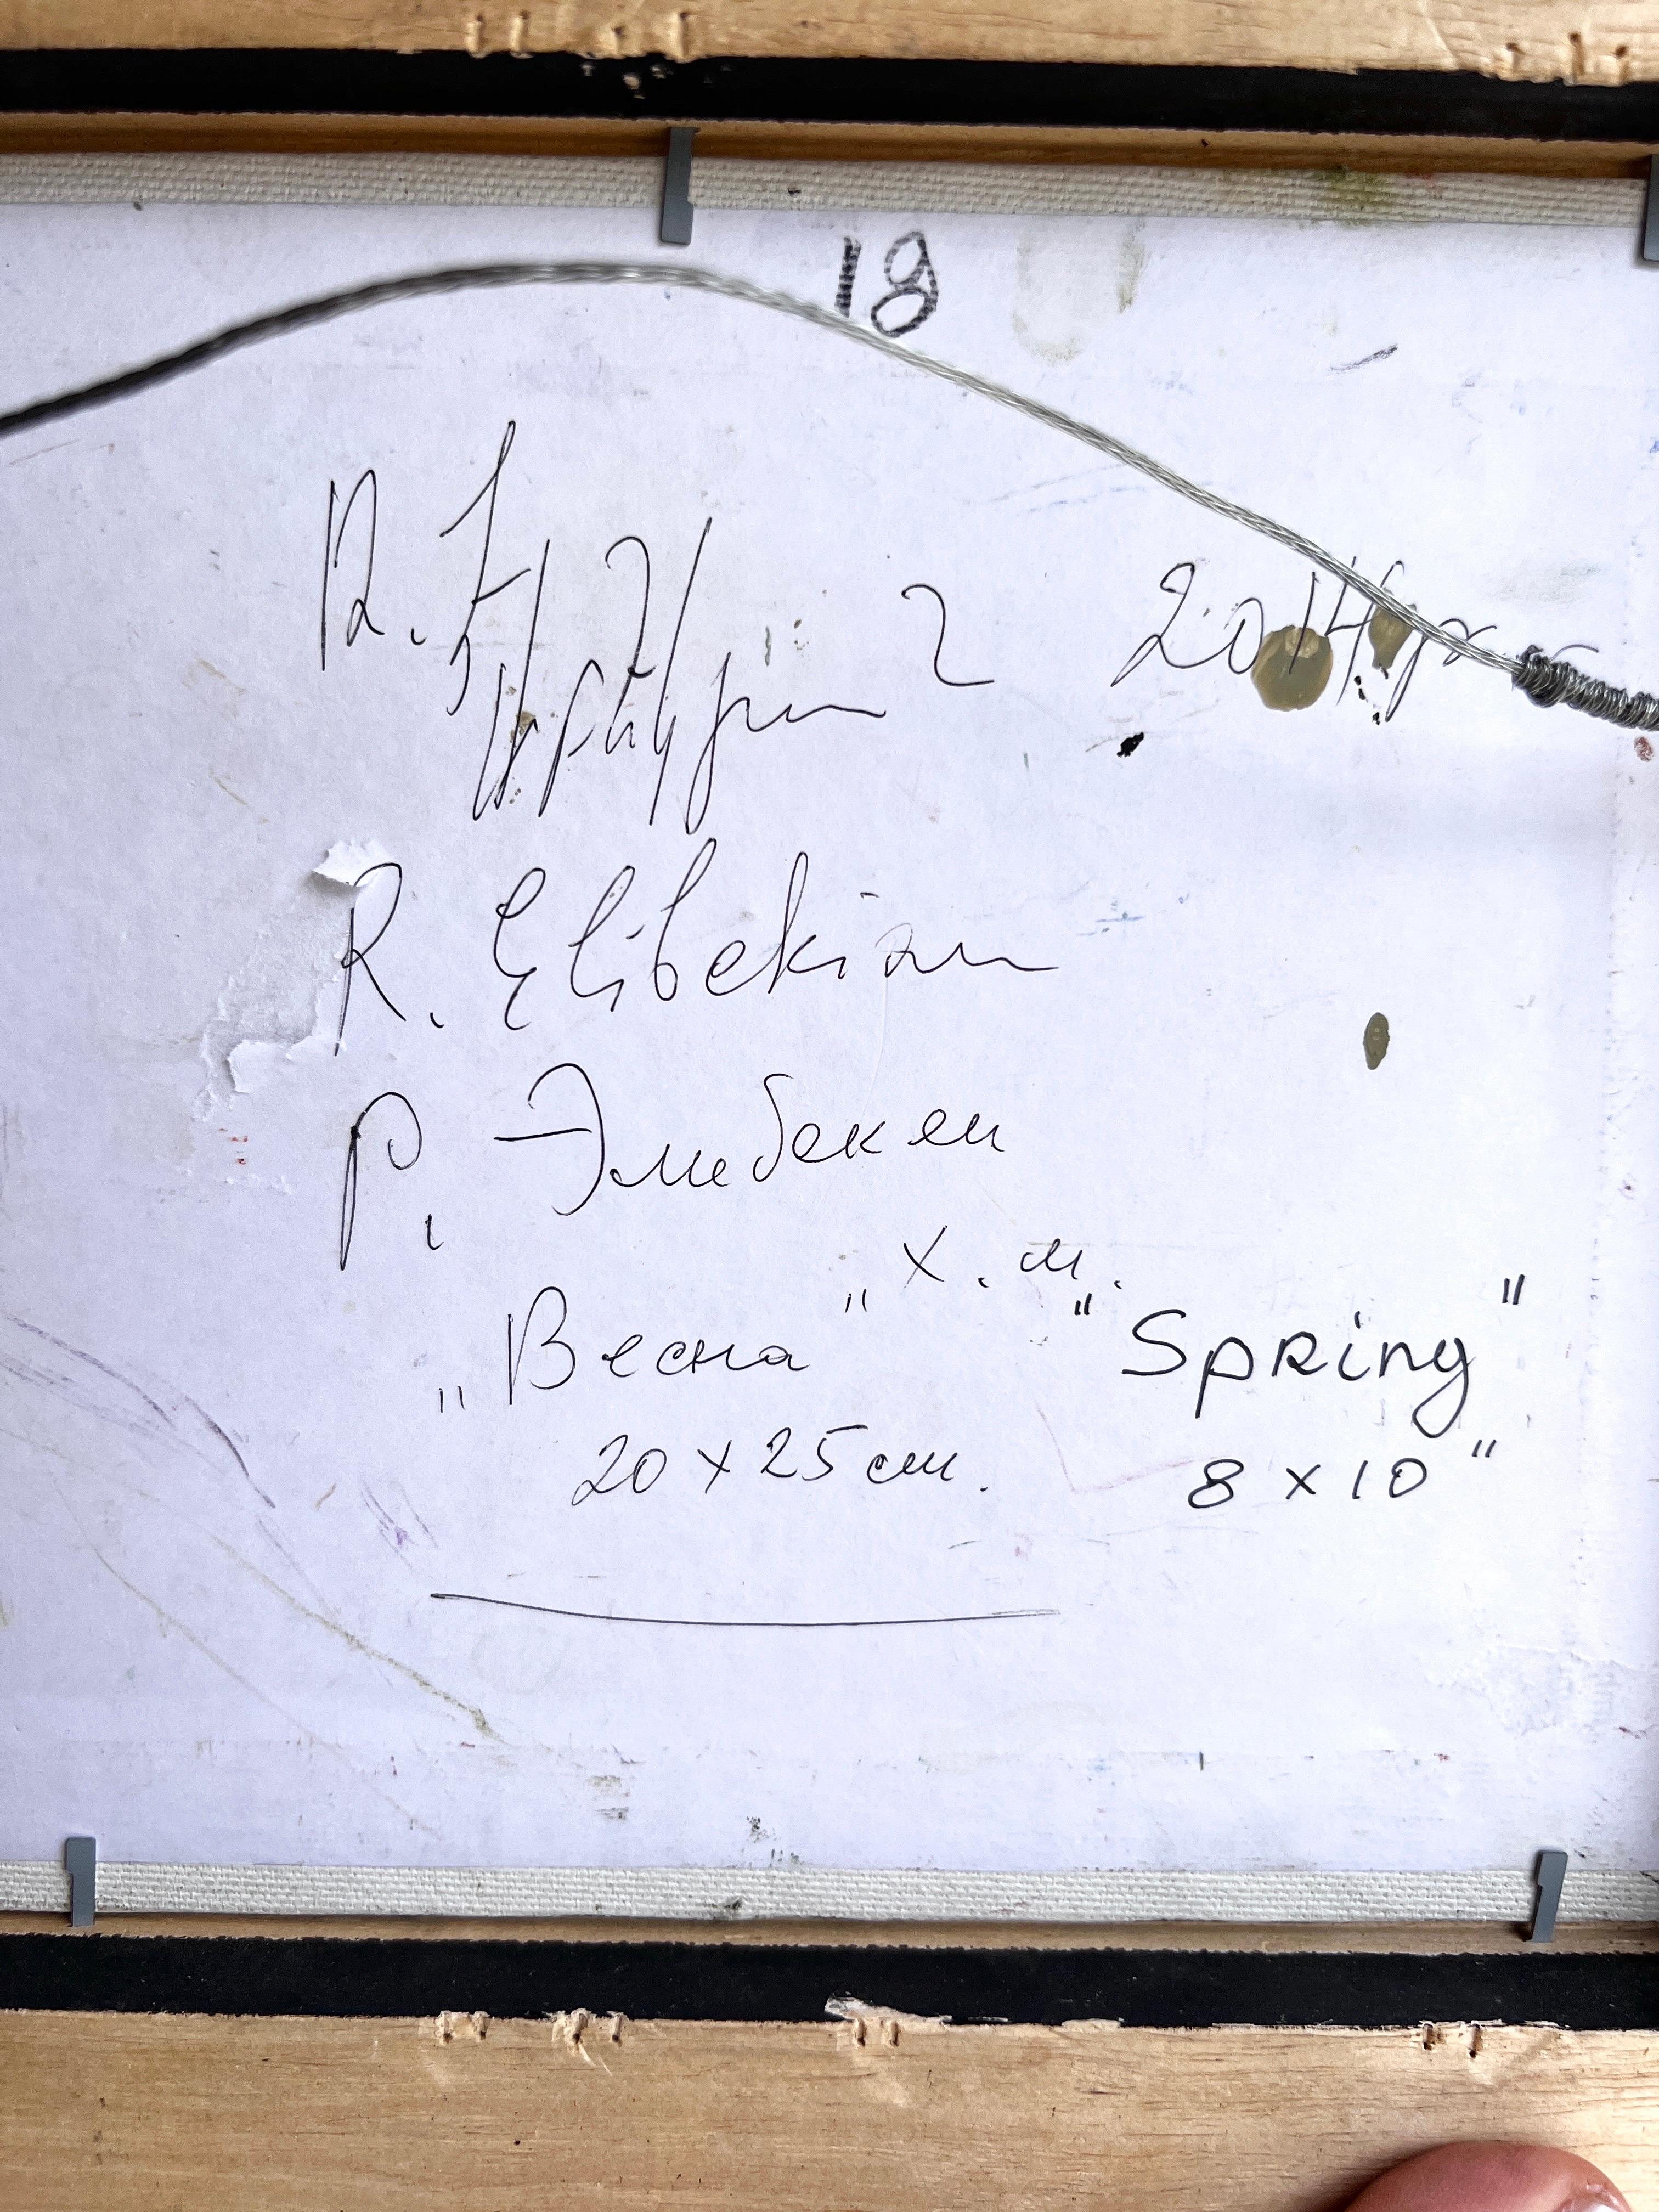 18
2014
R. Elibekian
Р. Элибекян
х.м.
„Весна" "Spring"
20 x 25 см. 8 x 10"